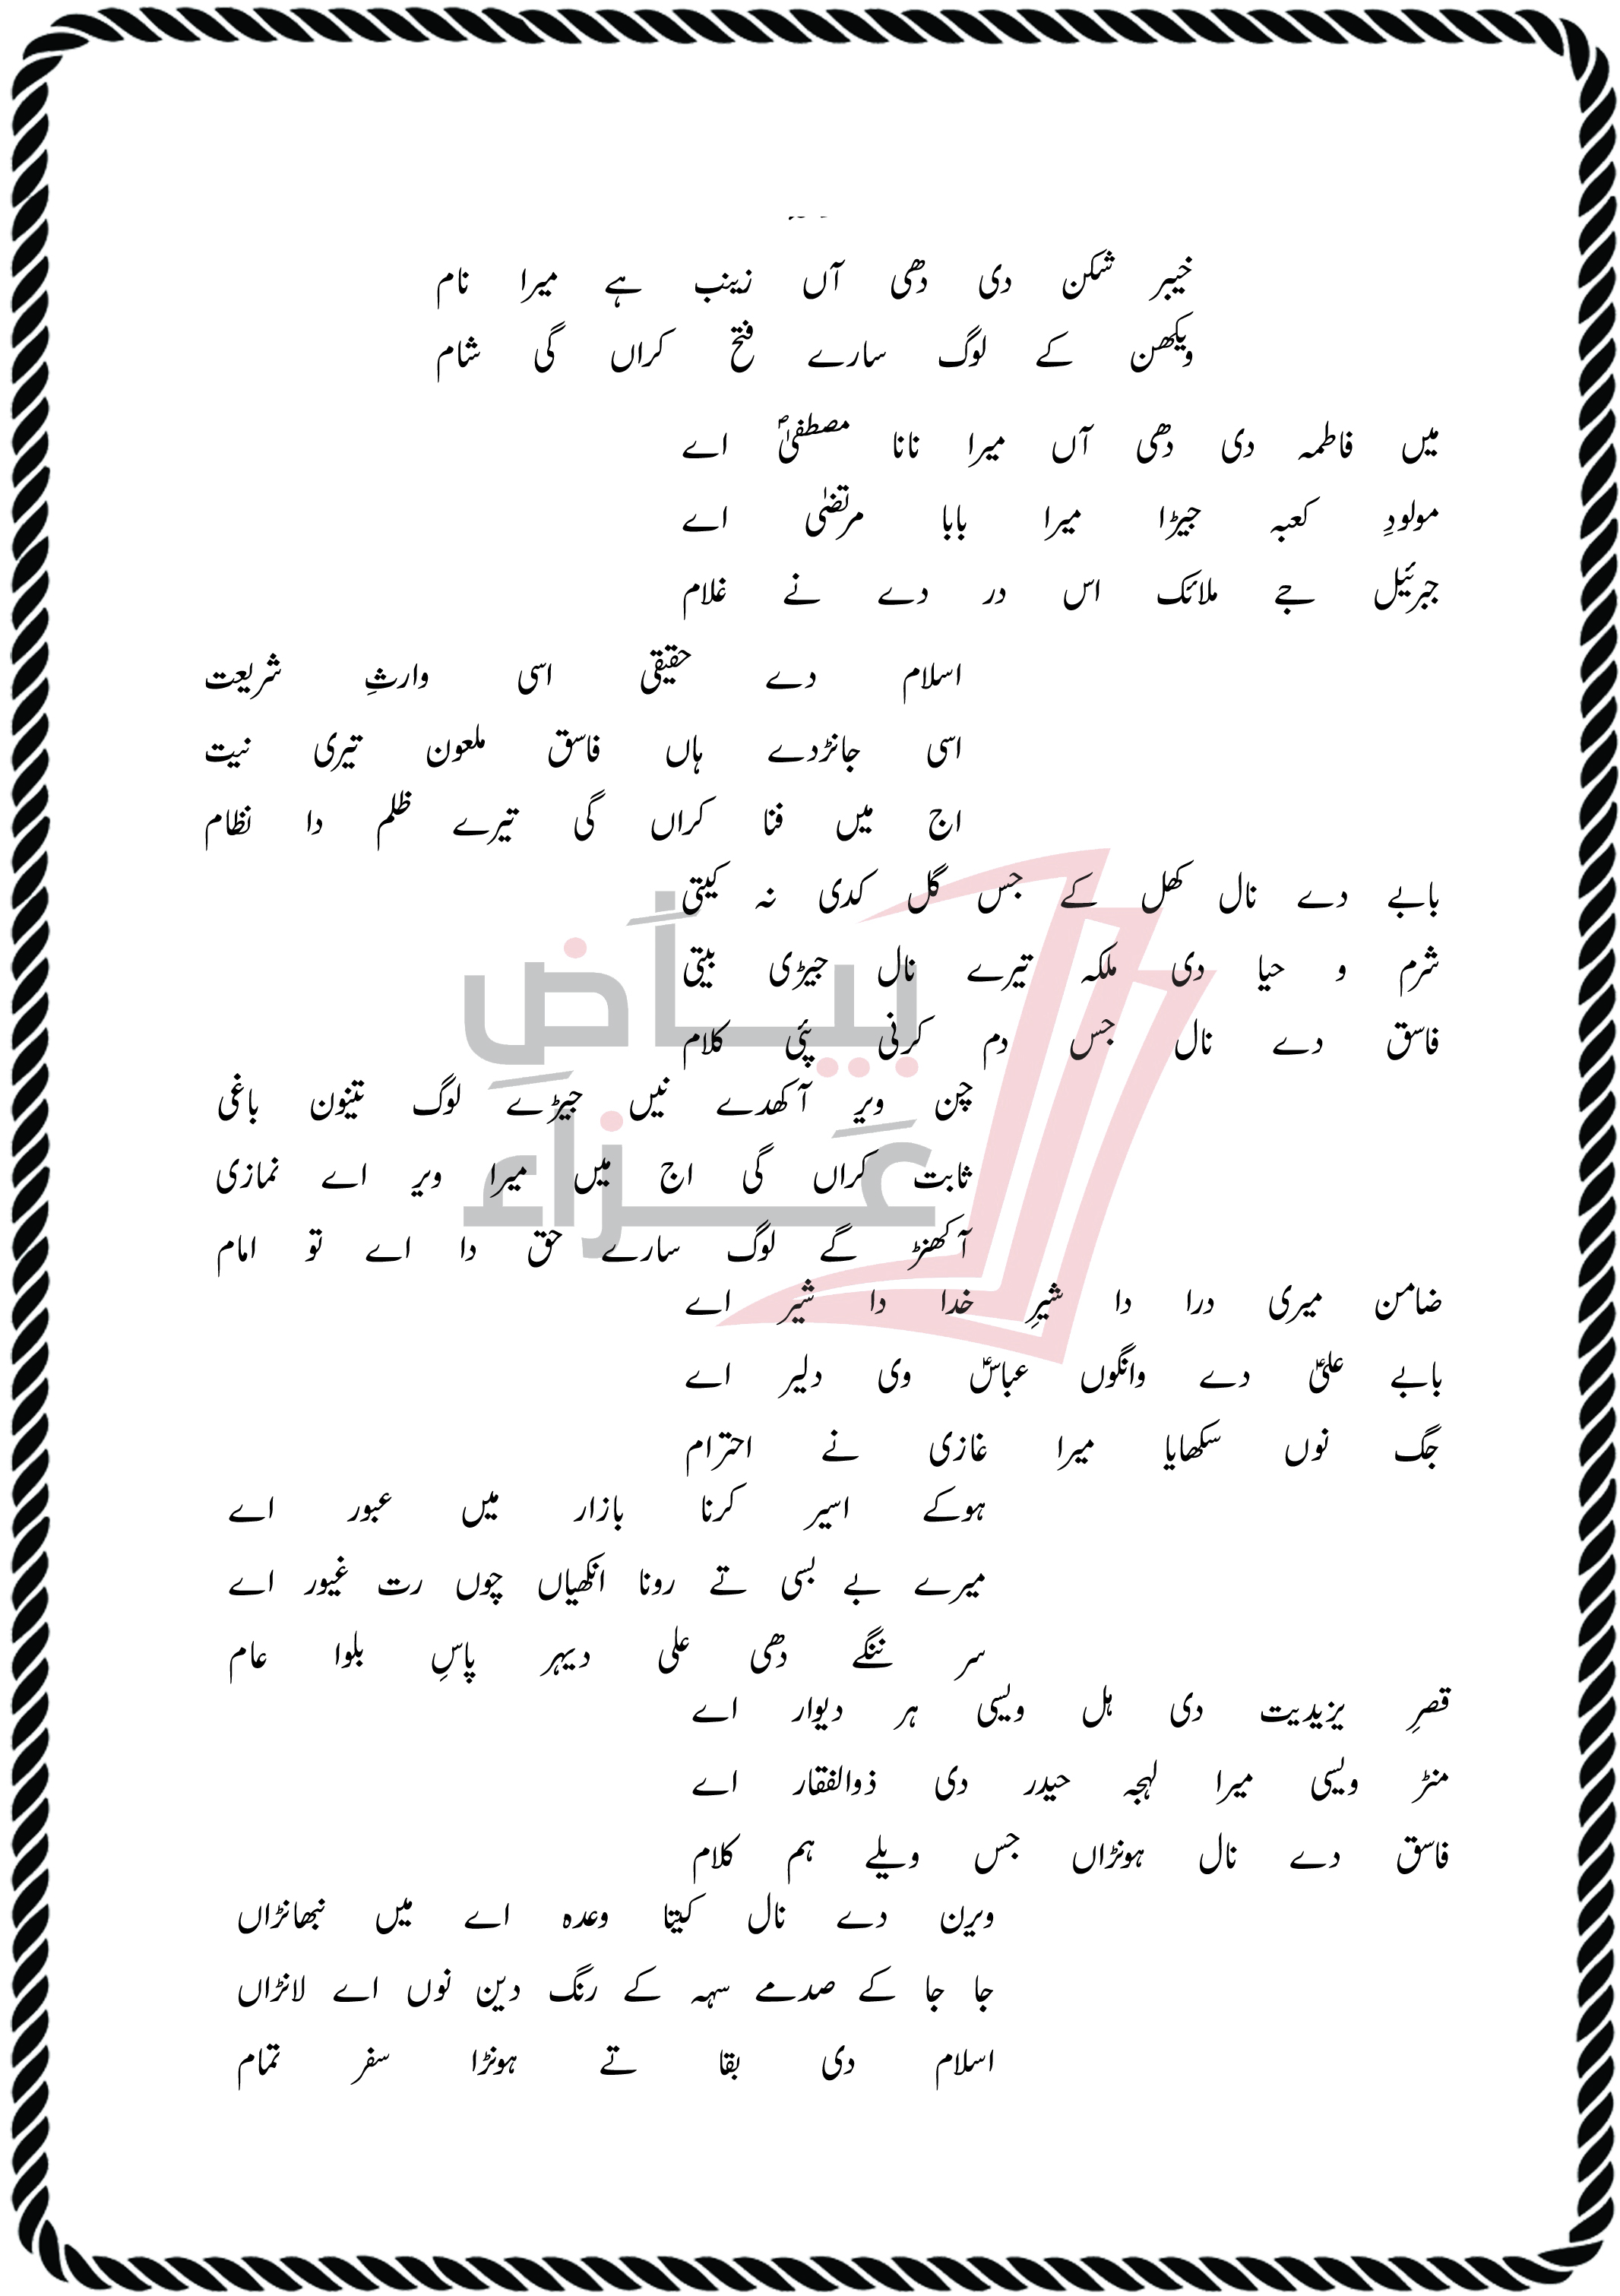 خیبر شکن دی دھی آں زینب ہے میرا نام
ویکھن کے لوگ سارے فتح کراں گی شام
میں فاطمہ دی دھی آں میرا نانا مصطفیٰؐ اے
مولودِ کعبہ جیڑا میرا بابا مرتضٰی اے
جبرئیل جے ملائک اس در دے نے غلام
اسلام دے حقیقی اسی وارثِ شریعت
اسی جانڑدے ہاں فاسق ملعون تیری نیت
اج میں فنا کراں گی تیرے ظلم دا نظام
بابے دے نال کھل کے جس گل کدی نہ کیتی
شرم و حیا دی ملکہ تیرے نال جیڑی بیتی
فاسق دے نال جس دم کرنی پئی کلام
چن ویر آکھدے نیں جیڑے لوگ تینون باغی
ثابت کراں گی اج میں میرا ویر اے نمازی
آکھنڑ گے لوگ سارے حق دا اے تو امام
ضامن میری درا دا شیرِ خدا دا شیر اے
بابے علیؑ دے وانگوں عباسؑ وی دلیر اے
جگ نوں سکھایا میرا غازی نے احترام
ہوکے اسیر کرنا بازار میں عبور اے
میرے بے بسی تے رونا انکھیاں چوں رت غیور اے
سر ننگے دھی علی دیہر پاسِ بلوا عام
قصرِ یزیدیت دی ہل ویسی ہر دیوار اے
منڑ ویسی میرا لہجہ حیدر دی ذوالفقار اے
فاسق دے نال ہونڑاں جس ویلے ہم کلام
ویرن دے نال کیتا وعدہ اے میں نبھانڑاں
جا جا کے صدمے سہہ کے رنگ دین نوں اے لانڑاں
اسلام دی بقا تے ہونڑا سفر تمام
بیاضِ
عَزاء